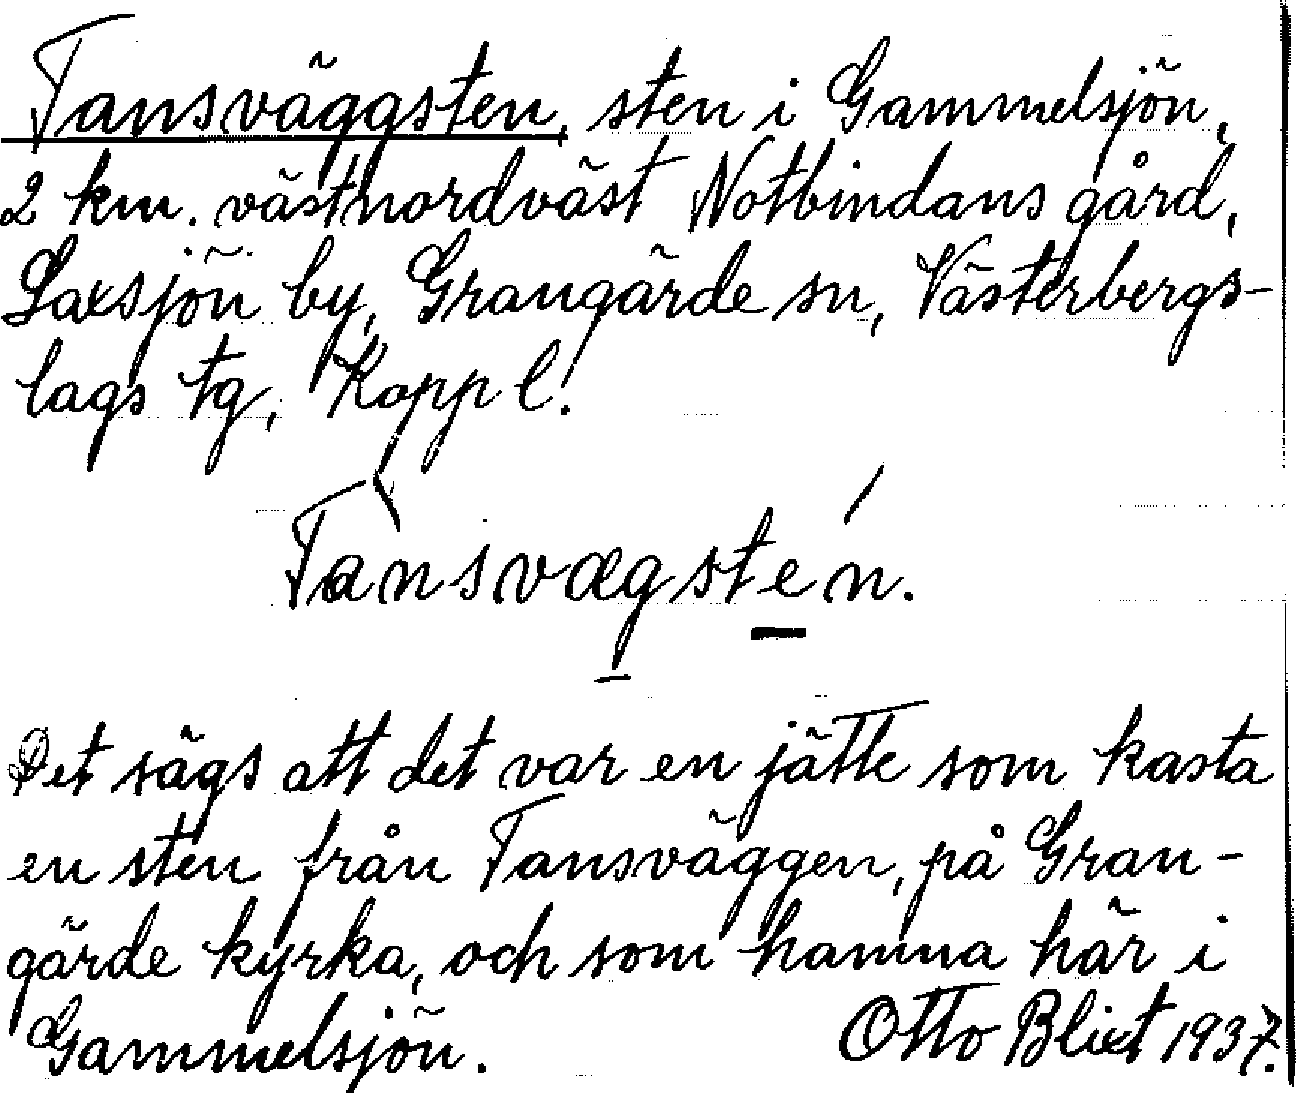 Tansväggsten, sten i Gammelsjön,
2 km. västnordväst Notbindans gård,
Laxsjön by, Grangärde sn, Västerbergs-
lags tg, Kopp l.
Tànsvægstén.
Det sägs att det var en jätte som kasta
en sten från Tansväggen, på Gran-
gärde kyrka, och som hamna här i
Gammelsjön. Otto Blixt 1937.